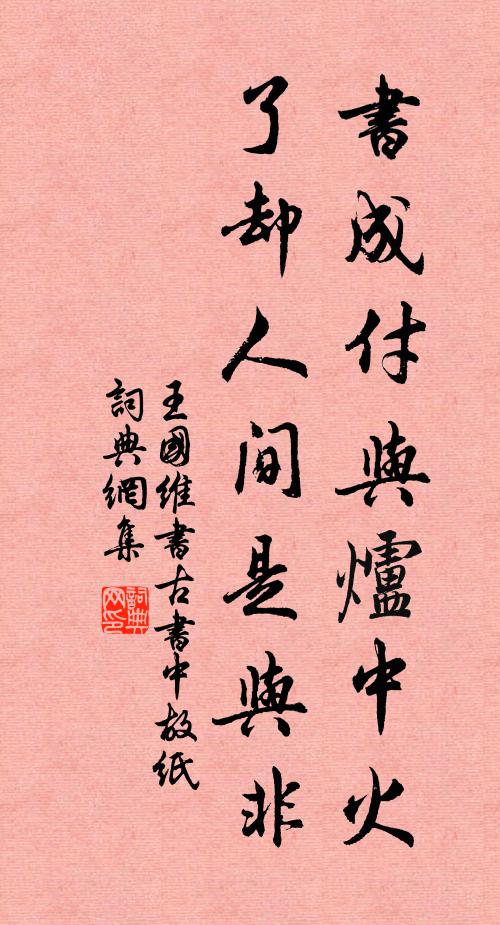 書成付與爐中火
了却人間是與非
王國維書古書中故紙
詞典網集
詞典
网印